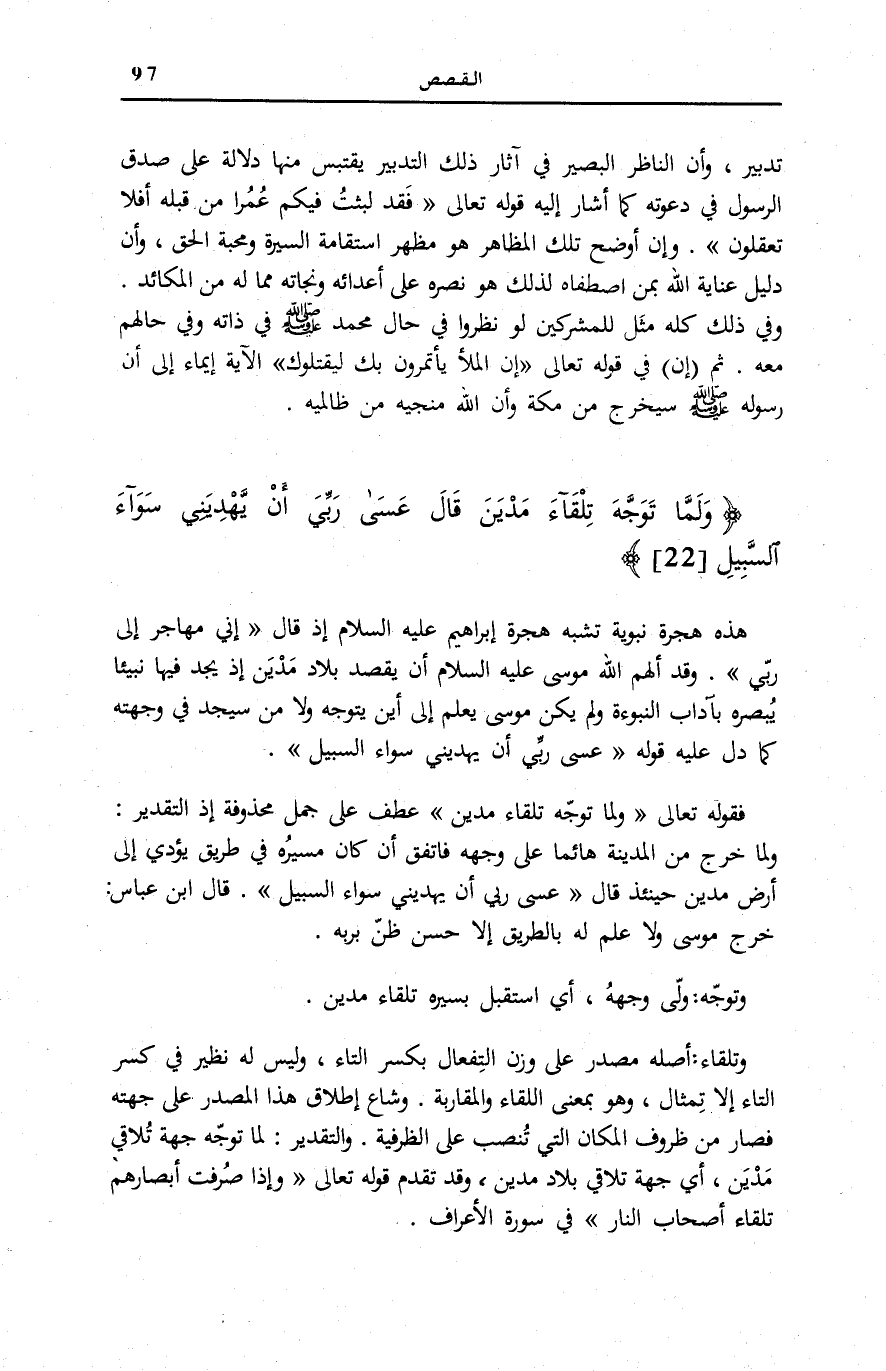 القصص 97
تدبير ، وأن الناظر البصير في آثار ذلك التدبير يقتبس منها دلالة على صدق
الرسول في دعوته كما أشار إليه قوله تعالى « فَقد لبثتُ فيكم عُمُرا من قبله أفلا
تعقلون » . وإن أوضح تلك المظاهر هو مظهر استقامة السيرة ومحبة الحق ، وأن
دليل عناية الله بمن اصطفاه لذلك هو نصره على أعدائه ونجاته مما له من المكائد .
وفي ذلك كله مثَل للمشركين لو نظروا في حال محمد ﷺ في ذاته وفي حالهم
معه . ثم (إن) في قوله تعالى «إن الملأ يأتمرون بك ليقتلوك» الآية إيماء إلى أن
رسوله ﷺ سيخرج من مكة وأن الله منجيه من ظالميه .
﴿ وَلَمَّا تَوَجَّهَ تِلْقَآءَ مَدْيَنَ قَالَ عَسَىٰ رَبِّيَ أَنْ يَّهْدِيَنِي سَوَآءَ
ٱلسَّبِيلِ [22] ﴾
هذه هجرة نبوية تشبه هجرة إبراهيم عليه السلام إذ قال « إني مهاجر إلى
ربّي » . وقد ألهم الله موسى عليه السلام أن يقصد بلاد مَدْيَن إذ يجد فيها نبيئا
يُبصره بآداب النبوءة ولم يكن موسى يعلم إلى أين يتوجه ولا من سيجد في وجهته
كما دل عليه قوله « عسى ربِّي أن يهديني سواء السبيل » .
فقوله تعالى « ولما توجّه تلقاء مدين » عطف على جمل محذوفة إذ التقدير :
ولما خرج من المدينة هائما على وجهه فاتفق أن كان مسيرُه في طريق يؤدي إلى
أرض مدين حينئذ قال « عسى ربي أن يهديني سواء السبيل » . قال ابن عباس:
خرج موسى ولا علم له بالطريق إلا حسن ظنّ بربه .
وتوجّه:ولّى وجههُ ، أي استقبل بسيره تلقاء مدين .
وتلقاء:أصله مصدر على وزن التِفعال بكسر التاء ، وليس له نظير في كسر
التاء إلا تِمثال ، وهو بمعنى اللقاء والمقاربة . وشاع إطلاق هذا المصدر على جهته
فصار من ظروف المكان التي تُنصب على الظرفية . والتقدير : لما توجّه جهة تُلاقي
مَدْيَن ، أي جهة تلاقي بلاد مدين ، وقد تقدم قوله تعالى « وإذا صُرفت أبصارهم
تلقاء أصحاب النار » في سورة الأعراف .